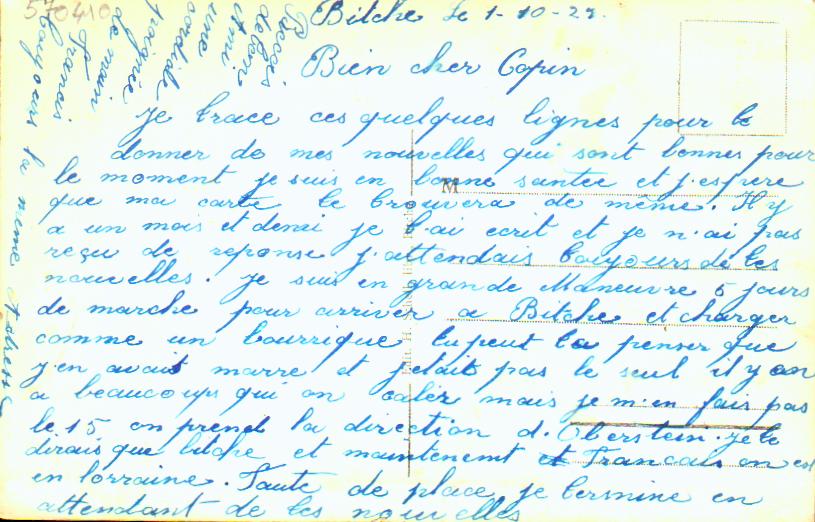 570410
Bitche le 1-10-29.
Bien cher Copin
Je trace ces quelques lignes pour te
donner de mes nouvelles qui sont bonnes pour
le moment je suis en bonne santée et j'espere
que ma carte te trouvera de même. Il y
a un mois et demi je t'ai ecrit et je n'ai pas
reçu de reponse j'attendais toujours de tes
nouvelles. Je suis en grande Maneuvre 5 jours
de marche pour arriver a Bitche et charger
comme un bourrique tu peut la penser que
j'en avait marre et j'etait pas le seul il y an
a beaucoups qui on caler mais je m'en fais pas
le 15 on prend la direction d'Oberstein. Je te
dirais que bitche et maintenemt Francais on est
en lorraine. Faute de place je termine en
attendant de tes nouvelles
Reçois
de ton
ami
une
cordiale
poignée
de main
Francis
toujours la meme
M